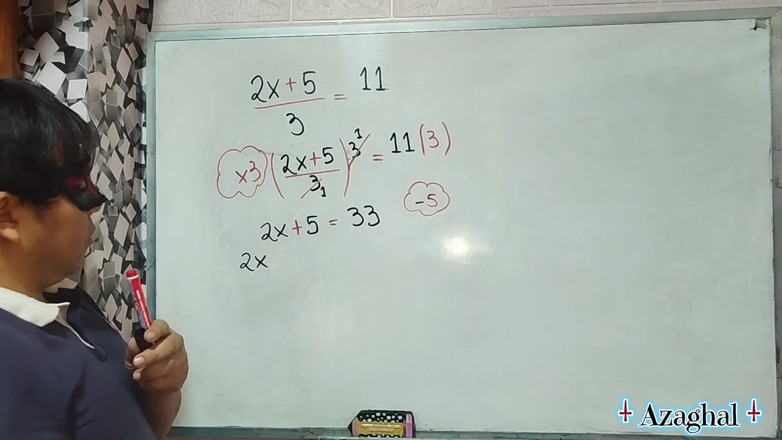 2x+5 / 3 = 11
x3 (2x+5 / 3 1) 3 1 = 11(3)
2x+5 = 33 -5
2x
Azaghal